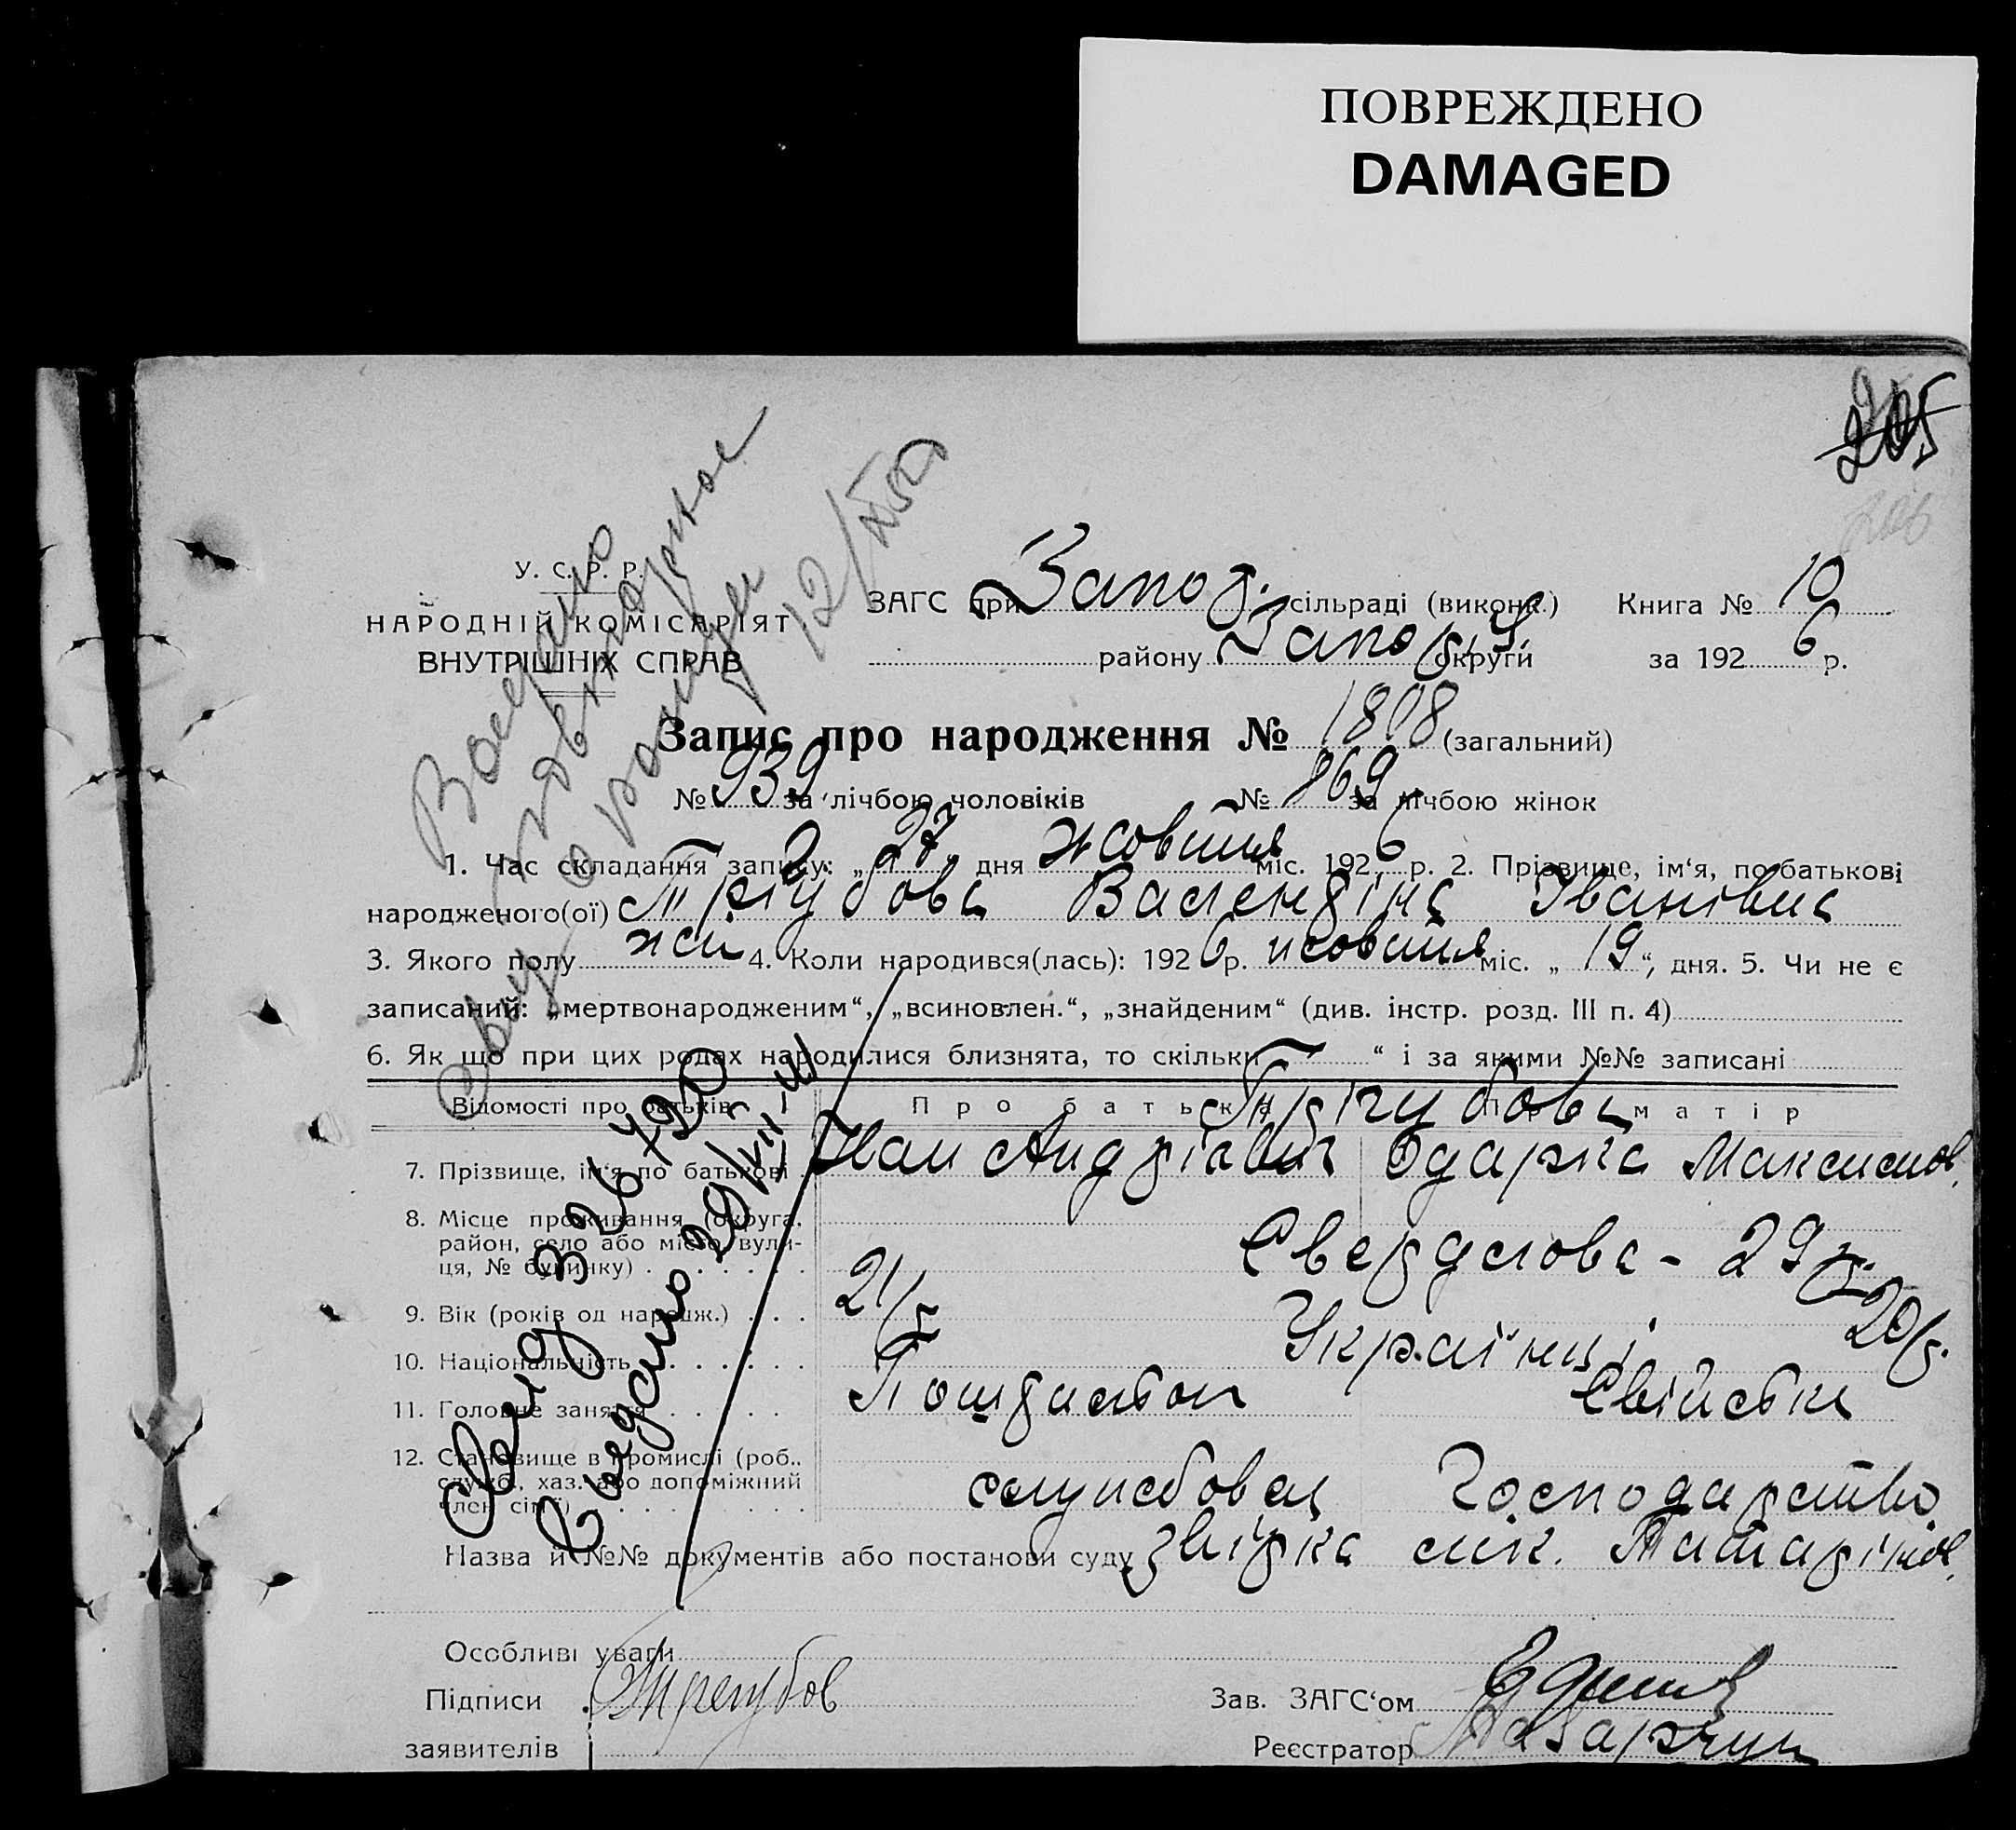 ПОВРЕЖДЕНО
DAMAGED
205
У. С. Р. Р.
НАРОДНІЙ КОМІСАРІЯТ
ВНУТРІШНІХ СПРАВ
ЗАГС при Запор. сільраді (викон.) Книга № 10
району Запоріз. округи за 1926 р.
Запис про народження № 1808 (загальний)
№ 939 за лічбою чоловіків № 869 за лічбою жінок
1. Час складання запису: „27“ дня жовтня міс. 1926 р. 2. Прізвище, ім‘я, по батькові
народженого(ої) Трігубова Валентіна Іванівна
3. Якого полу жін 4. Коли народився(лась): 1926 р. жовтня міс. „19“, дня. 5. Чи не є
записаний: „мертвонародженим“, „всиновлен.“, „знайденим“ (див. інстр. розд. III п. 4)
6. Як що при цих родах народилися близнята, то скільки “ і за якими №№ записані
Відомості про батьків Про батька Про матір
Трігубови
7. Прізвище, ім‘я по батькові Іван Андрієвич Одарка Максимов.
8. Місце проживання (округа,
район, село або місто, вули-
ця, № будинку) Свердлова - 29
9. Вік (років од нардж.) 21/р 20/р.
10. Національність Українці
11. Головне заняття Поштальон Свійське
12. Становище в промислі (роб.,
служб., хаз. або допоміжний
член сім‘ї) службовец Господарство
Назва й №№ документів або постанови суду звірка лік.
Особливі уваги
Підписи Трегубов Зав. ЗАГС‘ом
заявителів Реєстратор